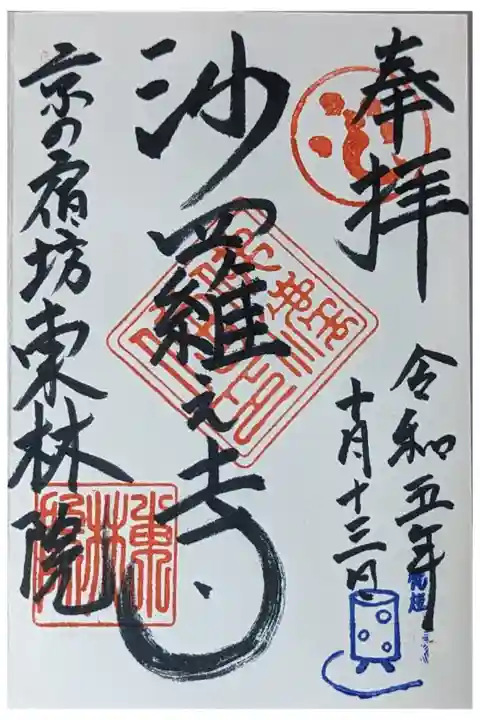 奉拝
令和五年
十月十三日
沙羅之寺
京の宿坊東林院
東林院